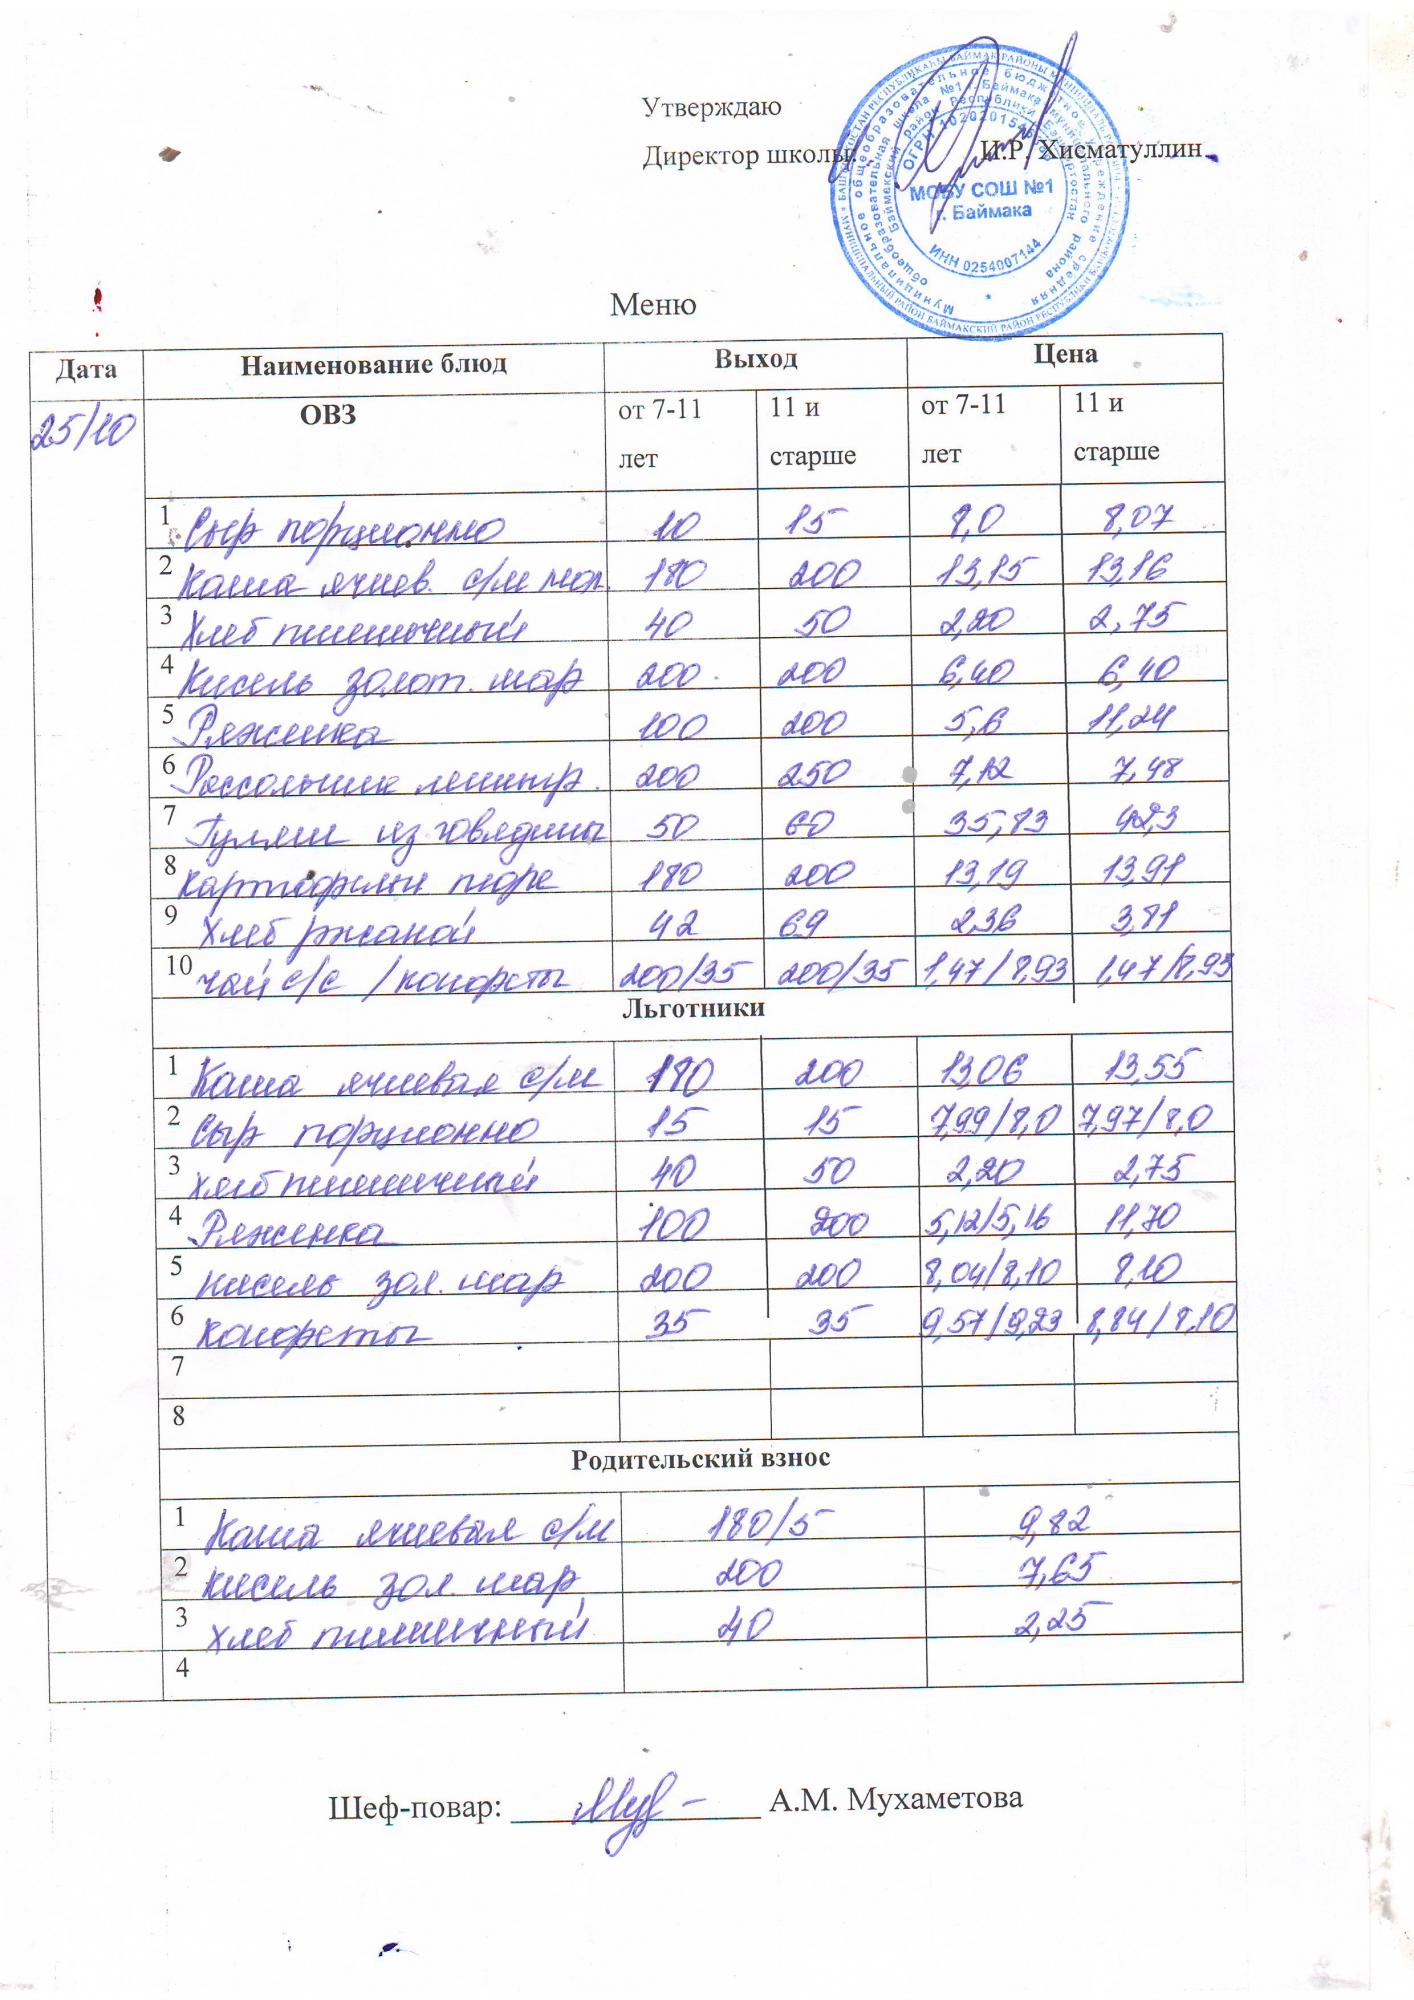 Утверждаю
Директор школы: И.Р. Хисматуллин
МОБУ СОШ №1
г. Баймака
ИНН 0254007144
Меню
Дата Наименование блюд Выход Цена
25/10 ОВЗ от 7-11 лет 11 и старше от 7-11 лет 11 и старше
1 Сыр порционно 10 15 8,0 8,07
2 Каша ячнев. с/м мол. 180 200 13,15 13,16
3 Хлеб пшеничный 40 50 2,20 2,75
4 Кисель золот. шар 200 200 6,40 6,40
5 Ряженка 100 200 5,6 11,24
6 Рассольник ленингр. 200 250 7,12 7,48
7 Гуляш из говядины 50 60 35,83 42,3
8 Картофельн пюре 180 200 13,19 13,91
9 Хлеб ржаной 42 69 2,36 3,81
10 чай с/с / конфеты 200/35 200/35 1,47/8,93 1,47/8,93
Льготники
1 Каша ячневая с/м 180 200 13,06 13,55
2 Сыр порционно 15 15 7,99/8,0 7,97/8,0
3 хлеб пшеничный 40 50 2,20 2,75
4 Ряженка 100 200 5,12/5,16 11,70
5 кисель зол. шар 200 200 8,04/8,10 8,10
6 конфеты 35 35 9,57/9,23 8,84/8,10
7
8
Родительский взнос
1 Каша ячневая с/м 180/5 9,82
2 кисель зол. шар 200 7,65
3 хлеб пшеничный 40 2,25
4
Шеф-повар: А.М. Мухаметова